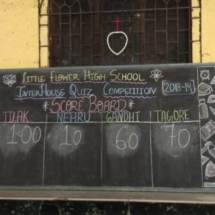 Little Flower High School
InterHouse Quiz Competition [2018-19]
Score Board
Tilak Nehru Gandhi Tagore
100 10 60 70